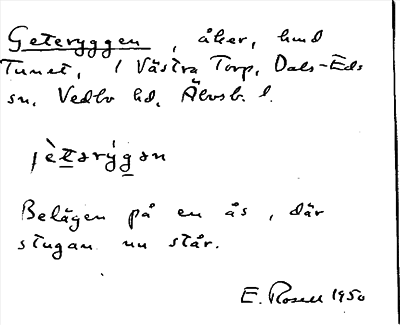 Geteryggen, åker, hmd
Tunet, 1 Västra Torp, Dals-Eds
sn, Vedbo hd, Älvsb. l.
jèterýgen
Belägen på en ås, där
stugan nu står.
E. Rosell 1950